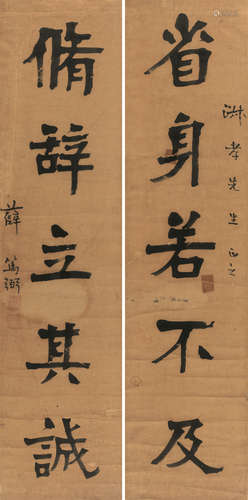 省身若不及
孝先生正之
脩辞立其誠
薛篤弼